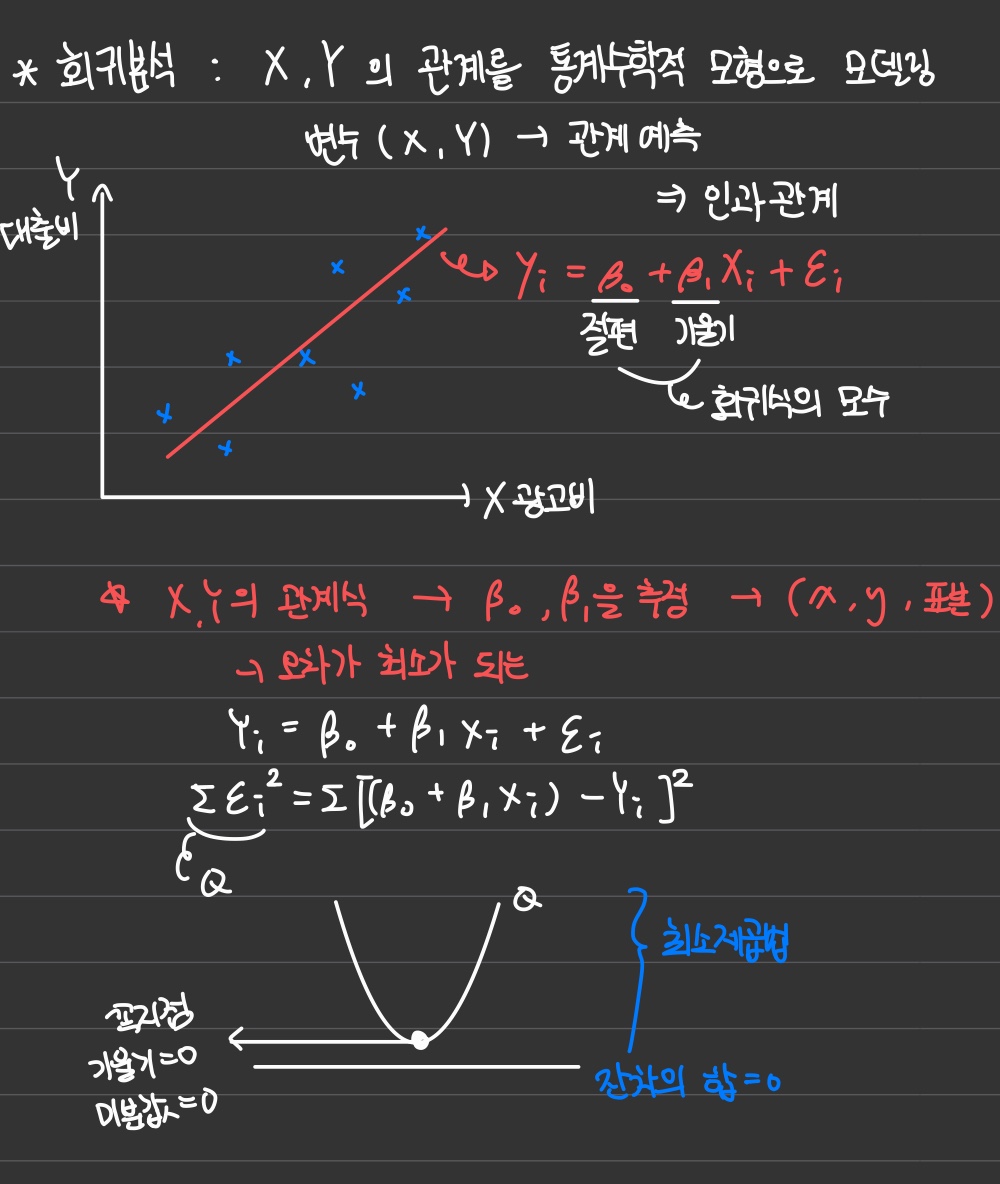 * 회귀분석 : X, Y 의 관계를 통계수학적 모형으로 모델링
변수 (X, Y) → 관계 예측
⇒ 인과관계
Y
대출비
Yi = β₀ + β₁Xi + εi
절편 기울기
회귀식의 모수
X 광고비
X, Y의 관계식 → β₀, β₁을 추정 → (x, y, 표본)
→ 오차가 최소가 되는
Yi = β₀ + β₁Xi + εi
Σεi² = Σ[(β₀ + β₁Xi) - Yi]²
Q
Q
최소제곱법
꼭지점
기울기=0
미분값=0
잔차의 합=0